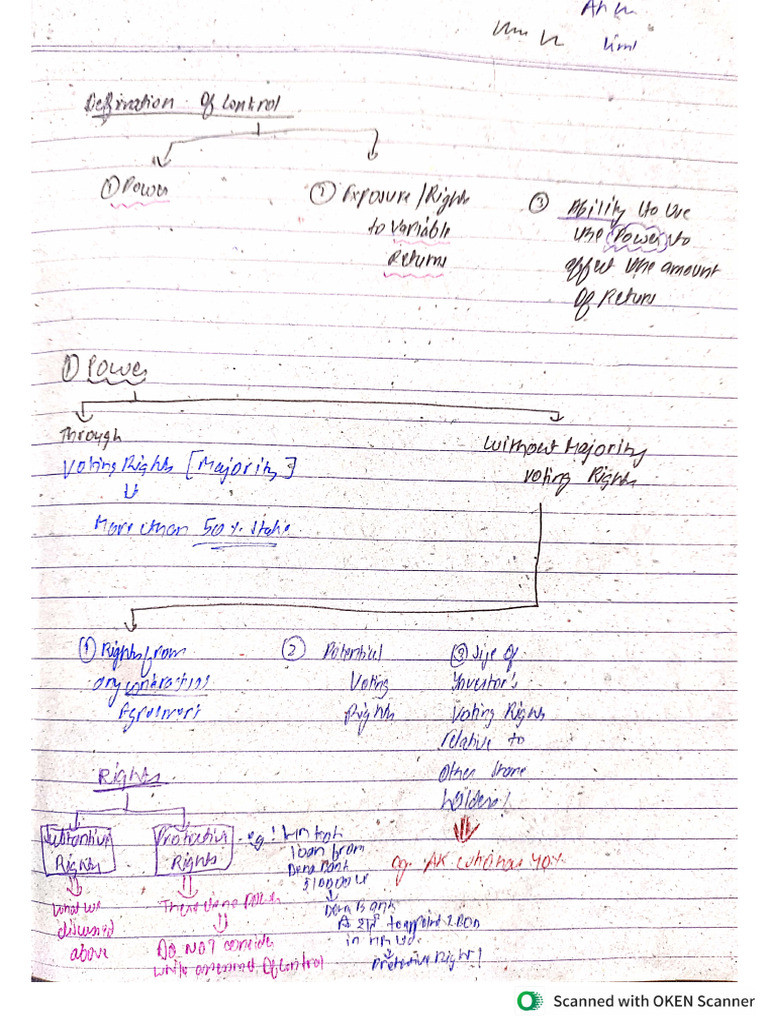 Limi
Deffination Of Control
① Power
② Exposure / Rights
to Variable
Returns
③ Ability to use
use Power to
affect the amount
Of Return
① Power
Through
Voting Rights [Majority]
More than 50% Stake
Without Majority
Voting Rights
① Rights from
any contractual
Agreement
② Potential
Voting
Rights
③ Size of
Investor's
Voting Rights
relative to
Other Share
holders!
eg. AK Ltd has 40%
Rights
Substantive
Rights
What we
discussed
above
Protective
Rights
These are
Do NOT consider
while assessment Of control
eg!
loan from
Dena Bank
Dena Bank
to appoint
in
Protective Right!
Scanned with OKEN Scanner